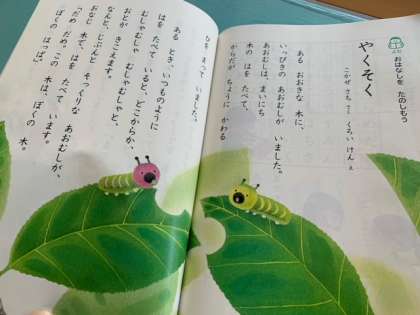 おはなしを たのしもう
やくそく
こかぜ さち さく
くろい けん え
ある おおきな 木に、
いっぴきの あおむしが いました。
あおむしは、まいにち
木の はを たべて、
からだが ちょうに かわる
ひを まって いました。
ある とき、いつものように
はを たべて いると、どこからか、
むしゃむしゃ むしゃむしゃと、
おとが きこえます。
なんと、じぶんと そっくりな あおむしが、
おなじ 木で、はを たべて います。
「だめ だめ。この 木は、ぼくの 木。
ぼくの はっぱ。」